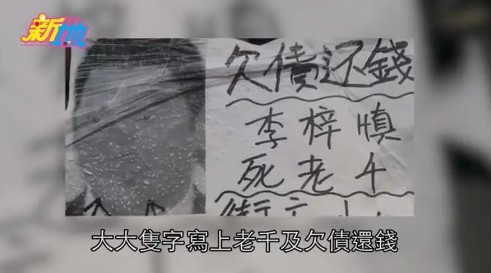 新地
欠債还錢
李梓慎
死老千
大大隻字寫上老千及欠債還錢